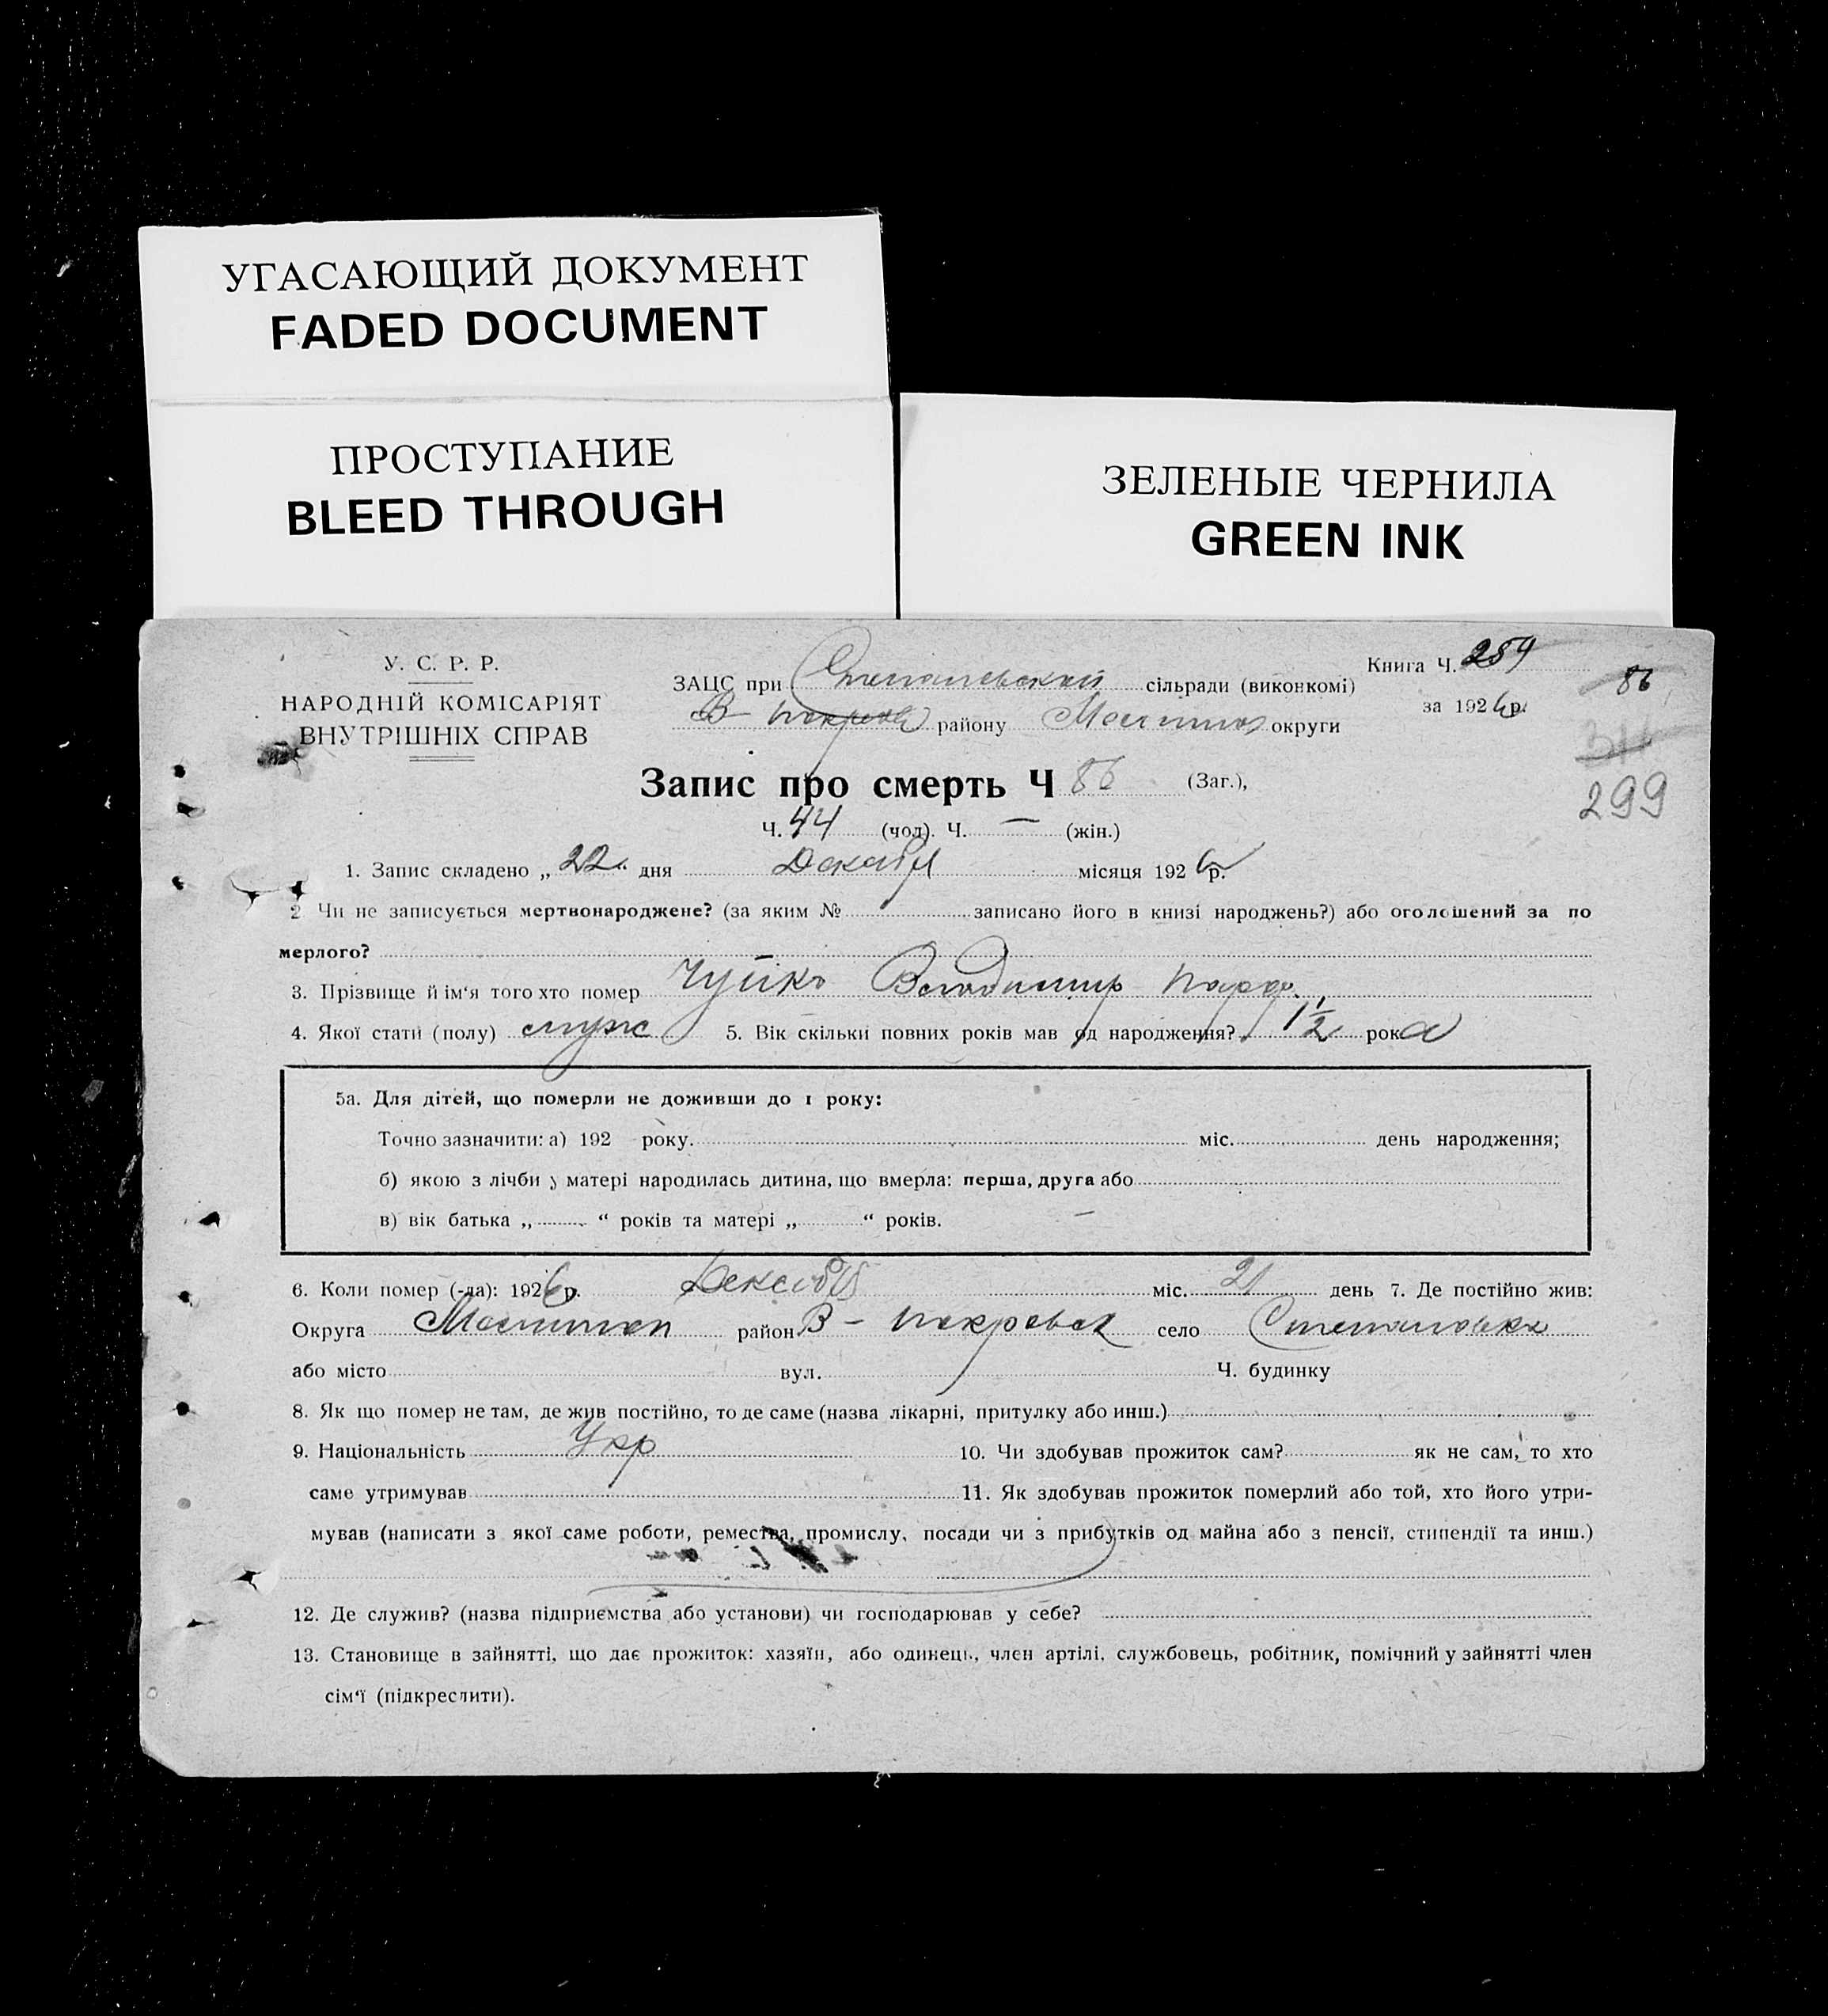 УГАСАЮЩИЙ ДОКУМЕНТ
FADED DOCUMENT
ПРОСТУПАНИЕ
BLEED THROUGH
ЗЕЛЕНЫЕ ЧЕРНИЛА
GREEN INK
У. С. Р. Р.
НАРОДНІЙ КОМІСАРІЯТ
ВНУТРІШНІХ СПРАВ
ЗАЦС при сільради (виконкомі)
району округи
Книга Ч. 259
за 1926 р.
86
299
Запис про смерть Ч 86 (Заг.),
Ч. 44 (чол). Ч. — (жін.)
1. Запис складено „ 22 " дня Декабр місяця 1926 р.
2 Чи не записується мертвонароджене? (за яким № записано його в книзі народжень?) або оголошений за по
мерлого?
3. Прізвище й ім'я того хто помер Чуйко Володимир
4. Якої стати (полу) муж 5. Вік скільки повних років мав од народження? 1 1/2 рока
5а. Для дітей, що померли не доживши до 1 року:
Точно зазначити: а) 192 року. міс. день народження;
б) якою з лічби у матері народилась дитина, що вмерла: перша, друга або
в) вік батька „ “ років та матері „ “ років.
6. Коли помер (-ла): 1926 р. Декабр міс. 21 день 7. Де постійно жив:
Округа район В - покровск село Степановка
або місто вул. Ч. будинку
8. Як що помер не там, де жив постійно, то де саме (назва лікарні, притулку або инш.)
9. Національність Укр 10. Чи здобував прожиток сам? як не сам, то хто
саме утримував 11. Як здобував прожиток померлий або той, хто його утри-
мував (написати з якої саме роботи, ремества, промислу, посади чи з прибутків од майна або з пенсії, стипендії та инш.)
12. Де служив? (назва підприємства або установи) чи господарював у себе?
13. Становище в зайнятті, що дає прожиток: хазяїн, або одинець, член артілі, службовець, робітник, помічний у зайнятті член
сім'ї (підкреслити).